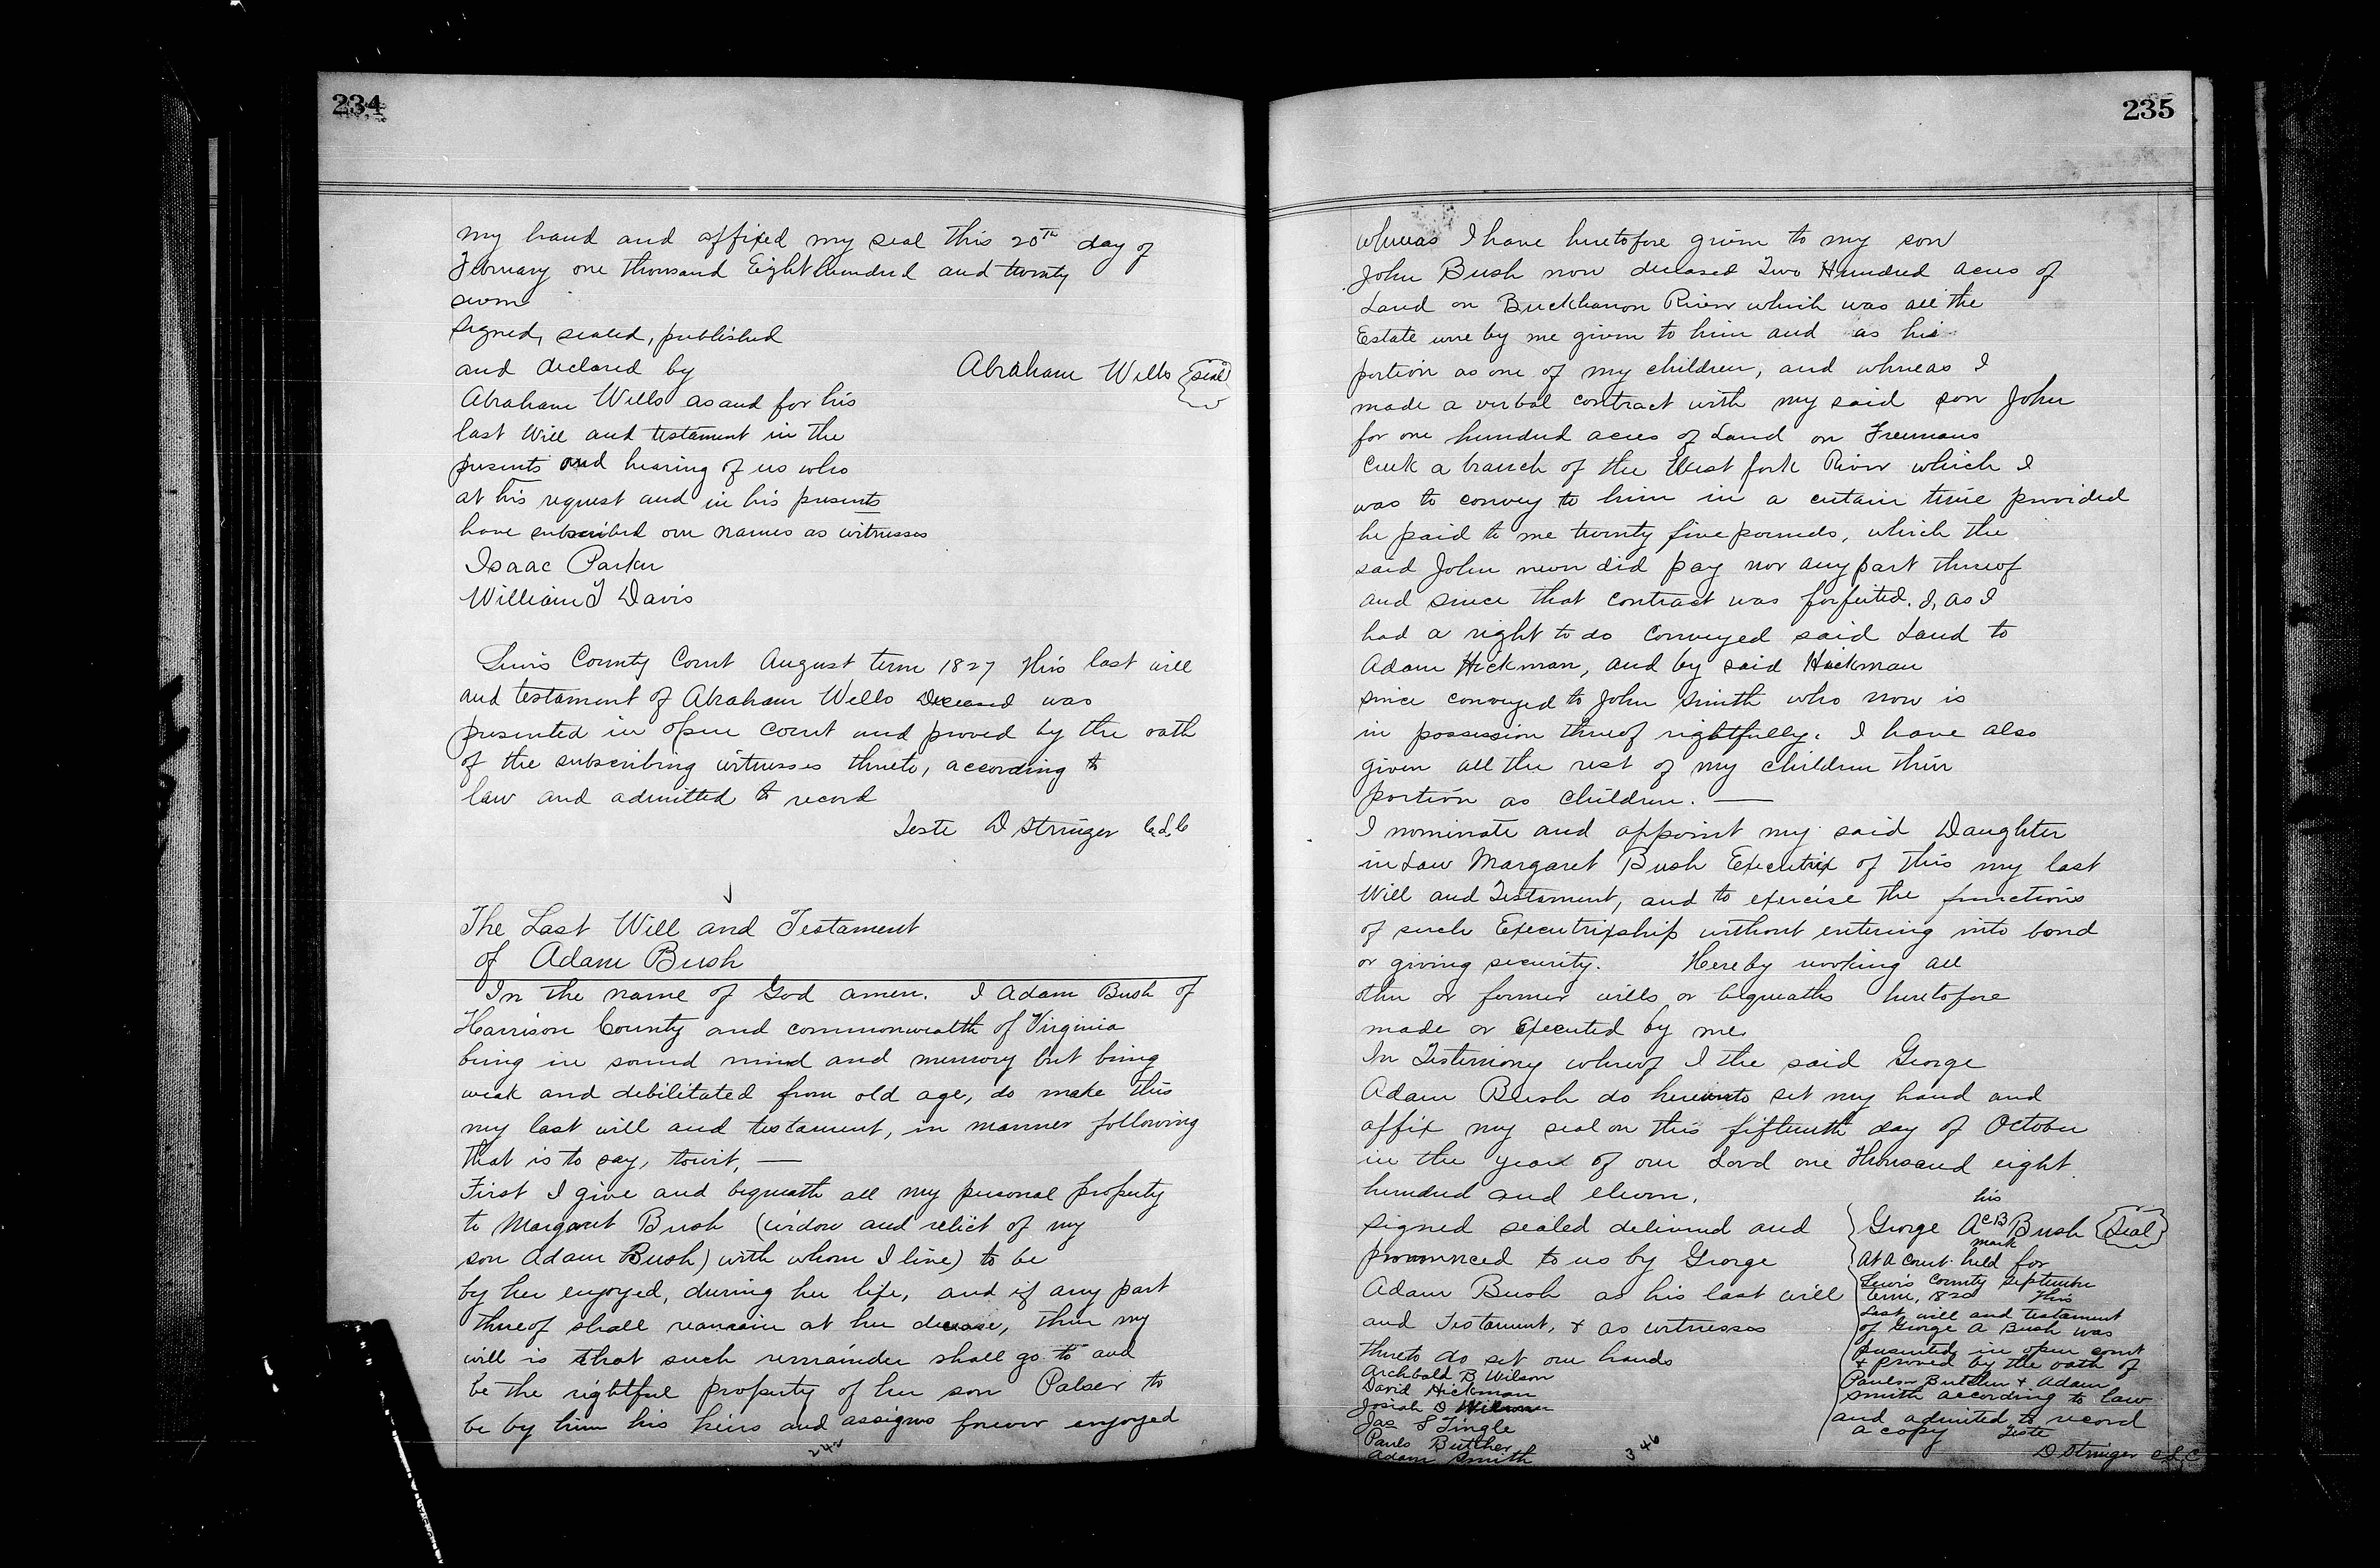 234
my hand and affixed my seal this 20th day of
February one thousand Eight hundred and twenty
seven
Signed, sealed, published
and declared by
Abraham Wells {seal}
Abraham Wells as and for his
last Will and testament in the
presents and hearing of us who
at his request and in his presents
have subscribed our names as witnesses
Isaac Parker
William J Davis
Lewis County Court August term 1827 This last will
and testament of Abraham Wells Deceased was
presented in open court and proved by the oath
of the subscribing witnesses thereto, according to
law and admitted to record
Teste D Stringer C.L.C
The Last Will and Testament
of Adam Bush
In the name of God amen. I Adam Bush of
Harrison County and commonwealth of Virginia
being in sound mind and memory but being
weak and debilitated from old age, do make this
my last will and testament, in manner following
that is to say, towit, —
First I give and bequeath all my personal property
to Margaret Bush (widow and relict of my
son Adam Bush) with whom I live) to be
by her enjoyed, during her life, and if any part
thereof shall remain at her decease, then my
will is that such remainder shall go to and
be the rightful property of her son Palser to
be by him his heirs and assigns forever enjoyed
242
235
whereas I have heretofore given to my son
John Bush now deceased Two Hundred acres of
Land on Buckhanon River which was all the
Estate ere by me given to him and as his
portion as one of my children, and whereas I
made a verbal contract with my said son John
for one hundred acres of Land on Freemans
Creek a branch of the West fork River which I
was to convey to him in a certain time provided
he paid to me twenty five pounds, which the
said John never did pay nor any part thereof
and since that contract was forfeited. I, as I
had a right to do conveyed said Land to
Adam Hickman, and by said Hickman
since conveyed to John Smith who now is
in possession thereof rightfully. I have also
given all the rest of my children their
portion as children. —
I nominate and appoint my said Daughter
in Law Margaret Bush Executrix of this my last
Will and Testament, and to exercise the functions
of such Executrixship without entering into bond
or giving security. Hereby revoking all
other or former wills or bequeaths heretofore
made or Executed by me
In Testimony whereof I the said George
Adam Bush do hereunto set my hand and
affix my seal on this fifteenth day of October
in the year of our Lord one thousand eight
hundred and eleven.
Signed sealed delivered and
pronounced to us by George
Adam Bush as his last will
and Testament, & as witnesses
thereto do set our hands
Archbald B Wilson
David Hickman
Josiah D Wilson
Jas S Tingle
Pauls Butcher
Adam Smith
346
his
George A C B Bush {Seal}
mark
At a Court held for
Lewis County September
term, 1820 This
Last will and testament
of George A Bush was
presented in open court
& proved by the oath of
Pauls Butcher & Adam
Smith according to law
and admited to record
a copy Teste
D Stringer C.L.C